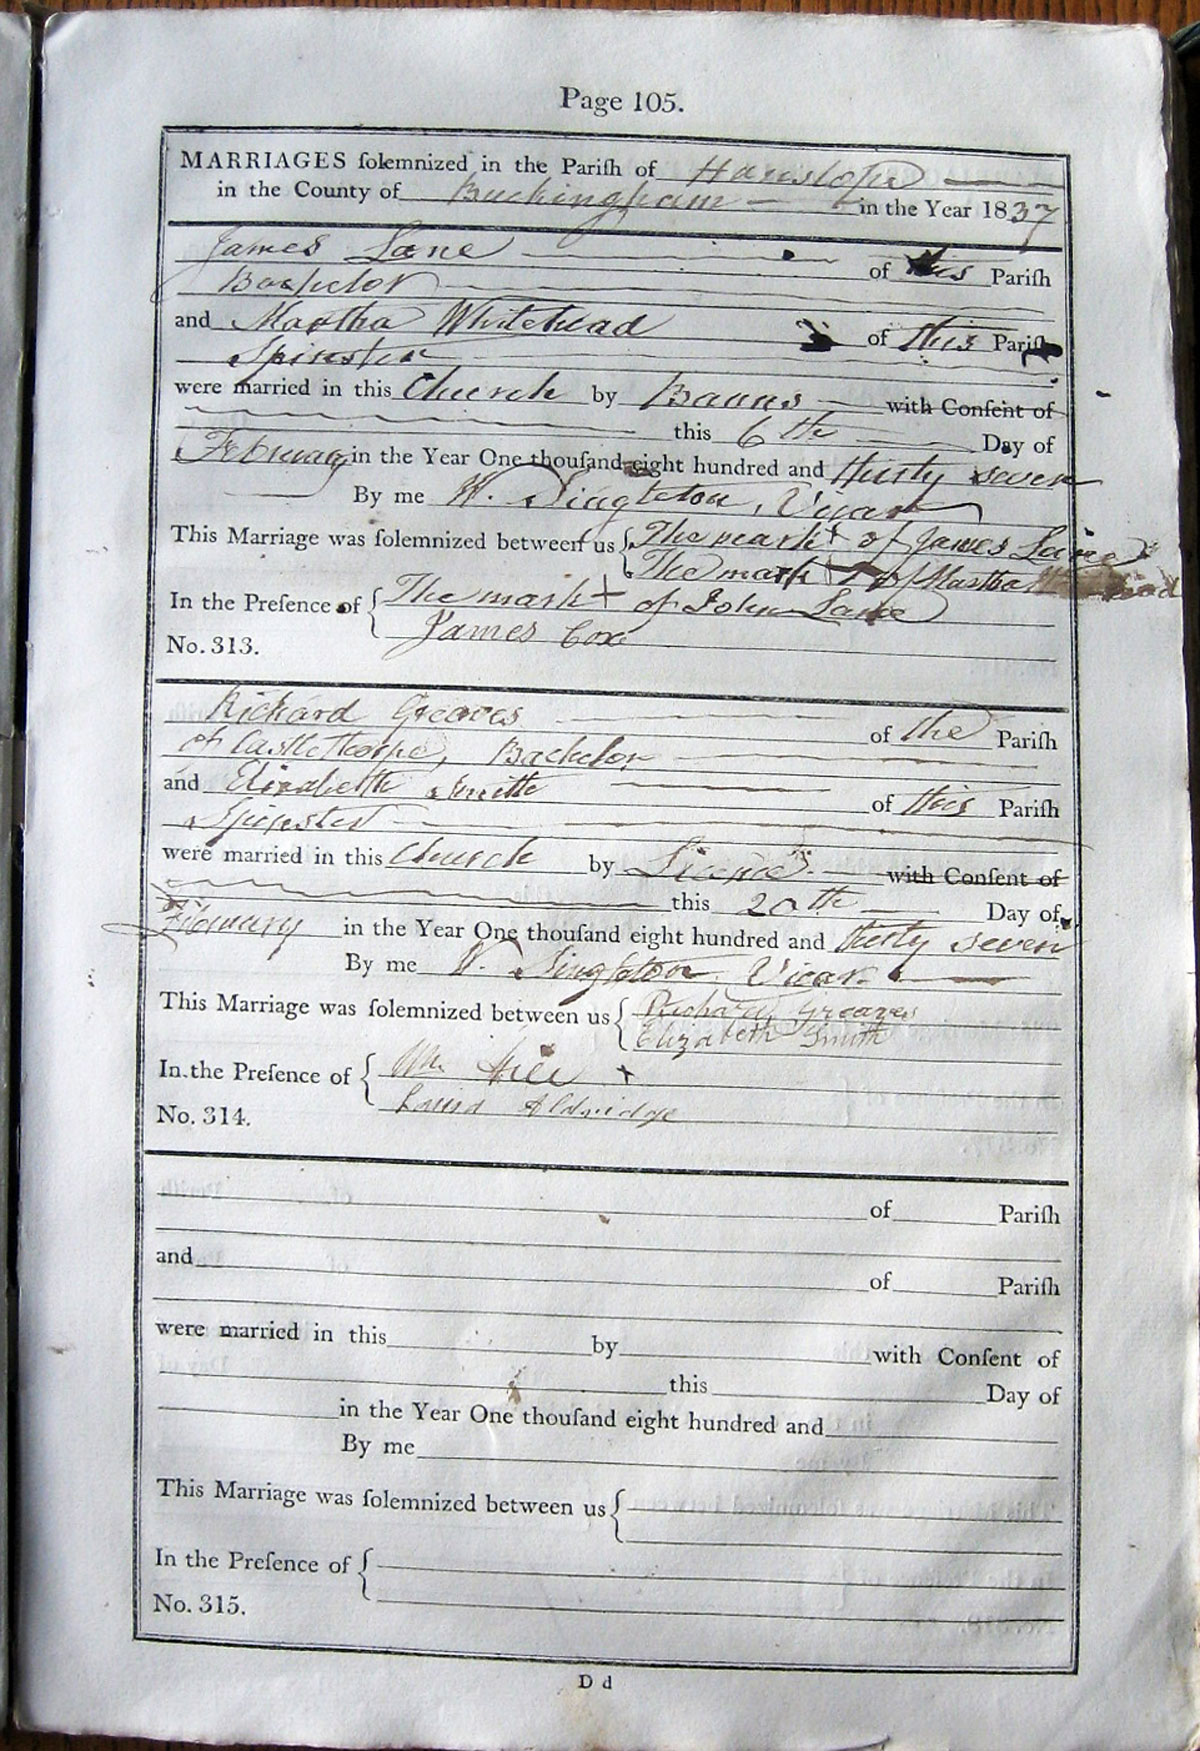 Page 105.
MARRIAGES ſolemnized in the Pariſh of Hanslope
in the County of Buckingham in the Year 1837
James Lane of this Pariſh
Bachelor
and Martha Whitehead of this Pariſh
Spinster
were married in this Church by Banns with Conſent of
this 6th Day of
February in the Year One thouſand eight hundred and thirty seven
By me W. Singleton, Vicar
This Marriage was ſolemnized between us The mark + of James Lane
The mark + of Martha
In the Preſence of The mark + of John Lane
James Cox
No. 313.
Richard Greaves of the Pariſh
of Castlethorpe, Bachelor
and Elizabeth Smith of this Pariſh
Spinster
were married in this Church by Licence with Conſent of
this 20th Day of
February in the Year One thouſand eight hundred and thirty seven
By me W. Singleton, Vicar.
This Marriage was ſolemnized between us Richard Greaves
Elizabeth Smith
In the Preſence of Wm. Hill +
Aldridge
No. 314.
of Pariſh
and of Pariſh
were married in this by with Conſent of
this Day of
in the Year One thouſand eight hundred and
By me
This Marriage was ſolemnized between us
In the Preſence of
No. 315.
D d